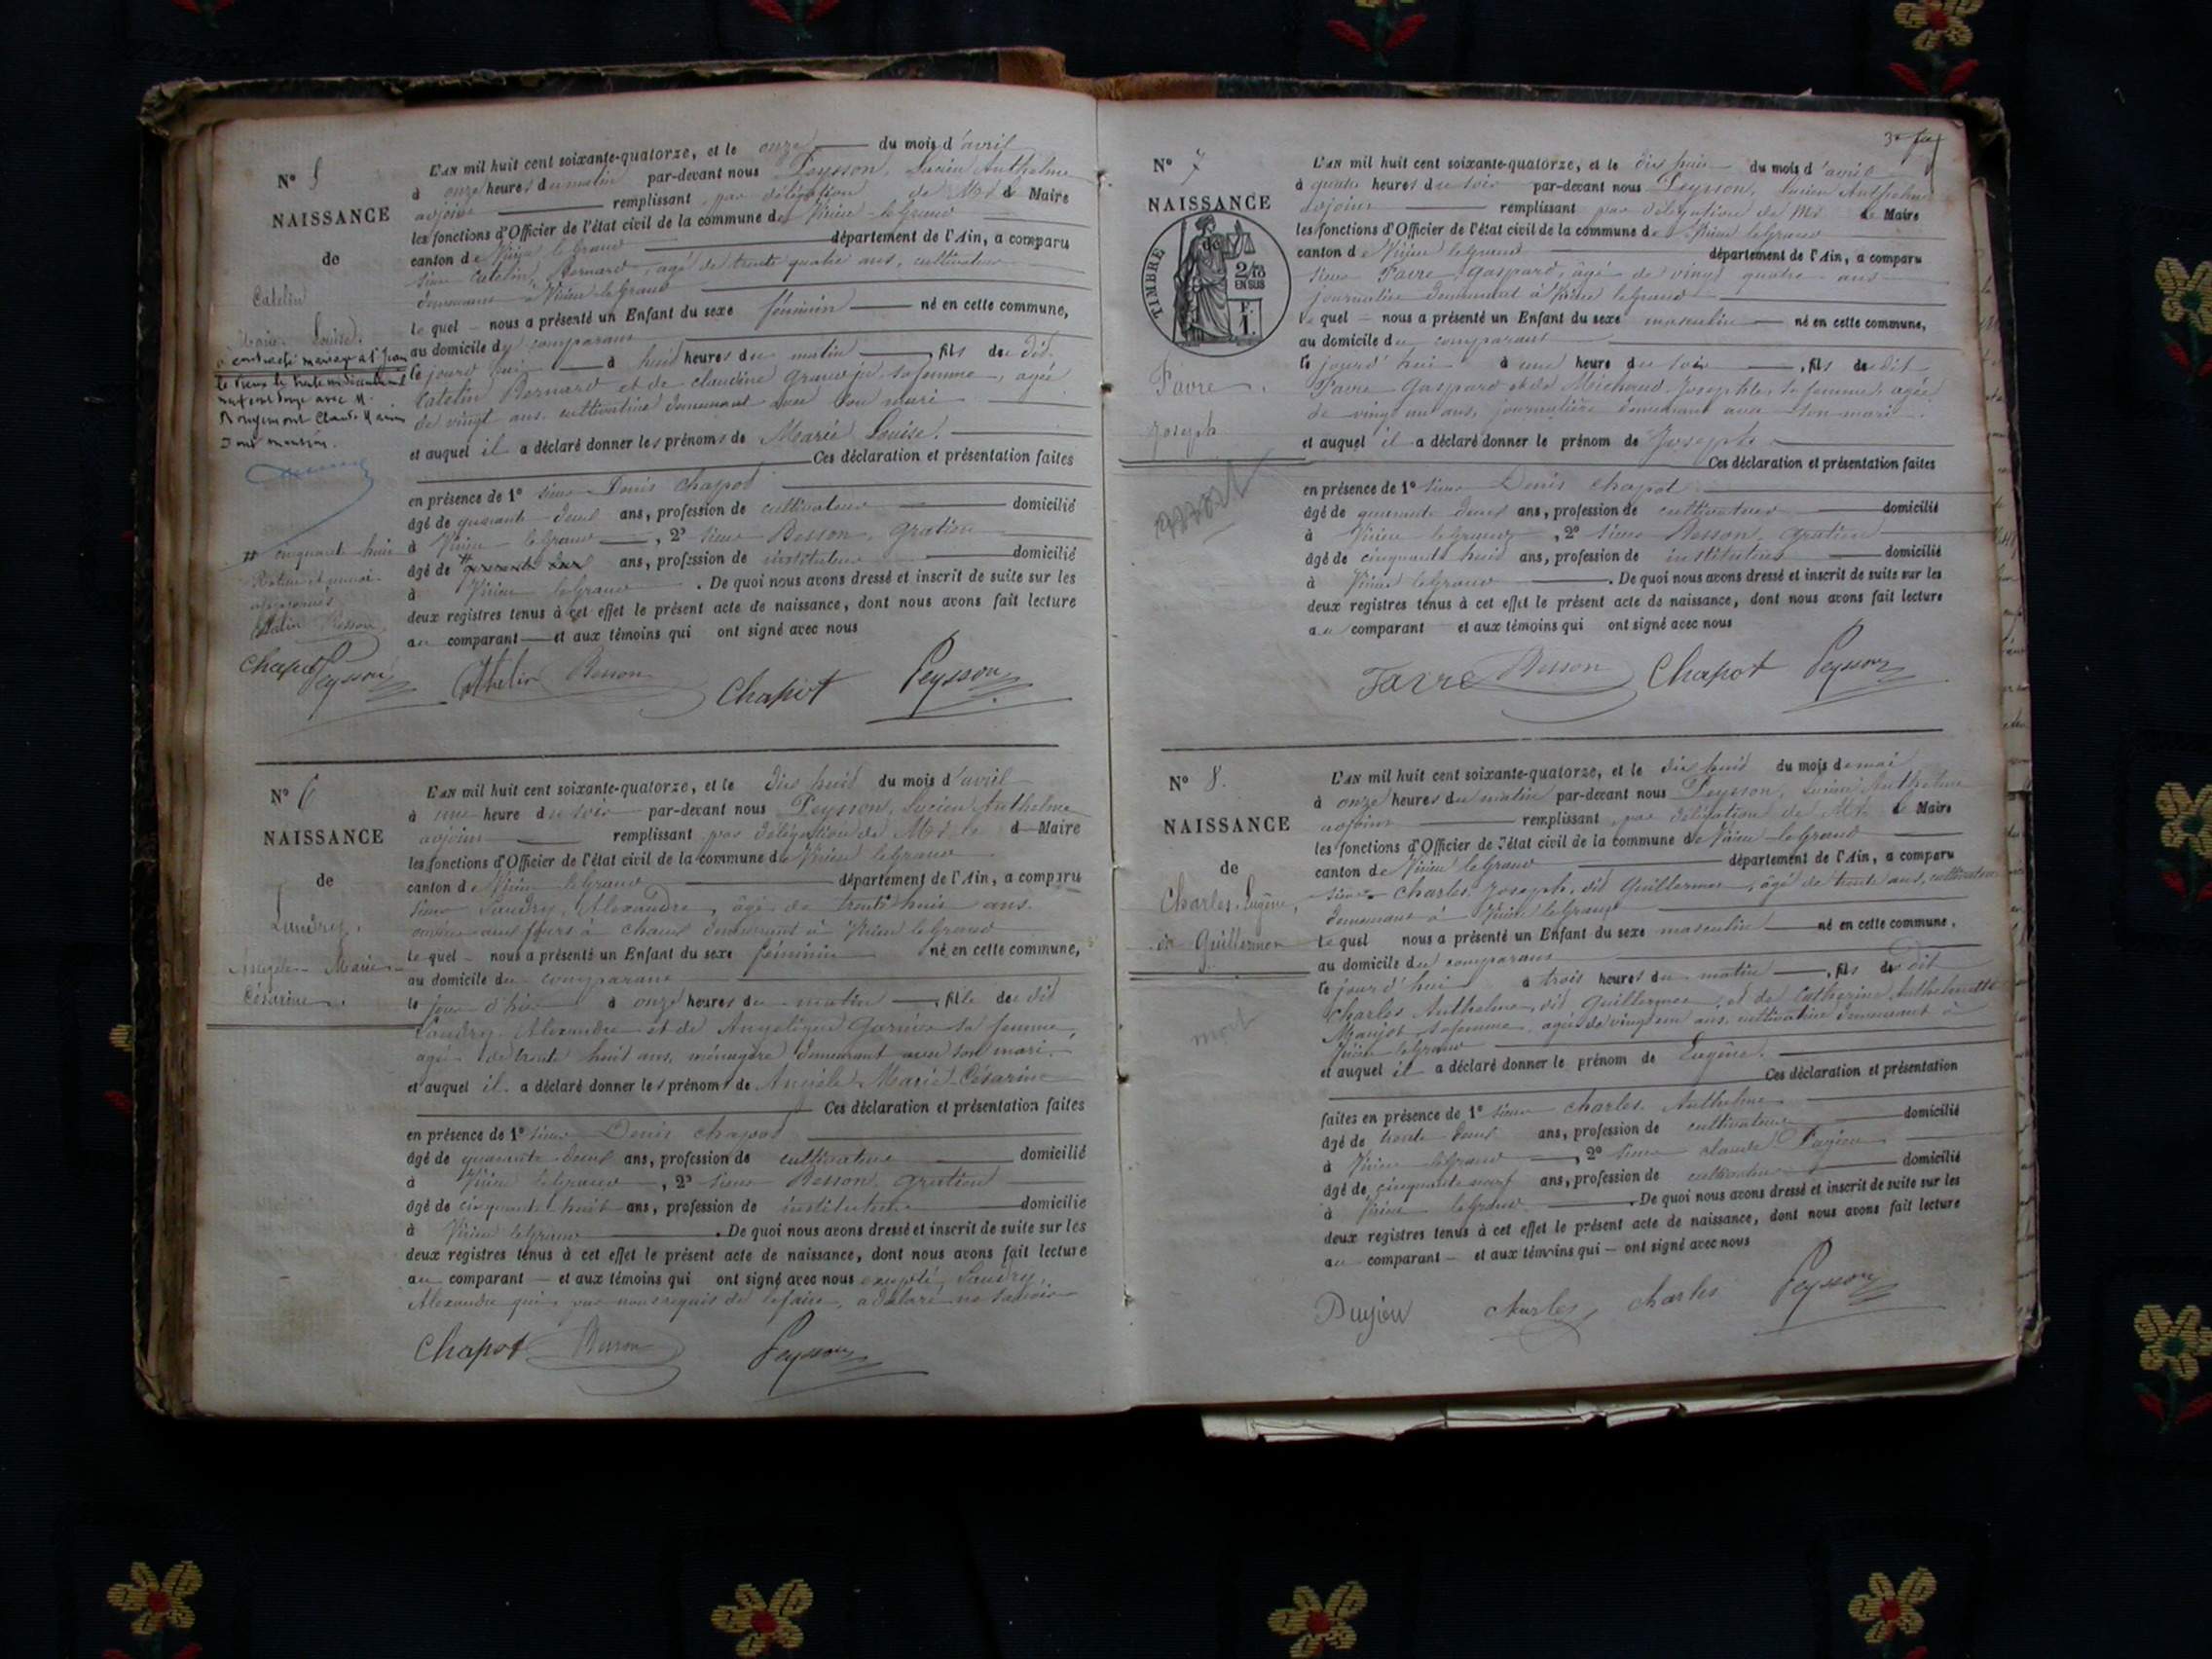 N° 5
NAISSANCE
de
Catelin
Marie Louise.
a contracté mariage à St Jean
le Vieux le trente
avec M.
Rougemont Claude Marius
# cinquante huit
approuvés
Catelin Besson
Chapot Peysson
L'AN mil huit cent soixante-quatorze, et le onze du mois d'avril
à onze heures du matin par-devant nous Peysson, Lucien Anthelme
adjoint remplissant par délégation de Mr le Maire
les fonctions d'Officier de l'état civil de la commune de Virieu le Grand
canton de Virieu le Grand département de l'Ain, a comparu
sieur Catelin, Bernard, agé de trente quatre ans, cultivateur
demeurant à Virieu le Grand
lequel nous a présenté un Enfant du sexe féminin né en cette commune,
au domicile du comparant
le jourd'hui à huit heures du matin, fils de dit
Catelin Bernard et de Claudine sa femme, agée
de vingt ans, cultivatrice demeurant avec son mari
et auquel il a déclaré donner les prénoms de Marie Louise.
Ces déclaration et présentation faites
en présence de 1° sieur Denis Chapot
âgé de quarante deux ans, profession de cultivateur domicilié
à Virieu le Grand, 2° sieur Besson, Gratien
âgé de # quarante deux ans, profession de instituteur domicilié
à Virieu le Grand. De quoi nous avons dressé et inscrit de suite sur les
deux registres tenus à cet effet le présent acte de naissance, dont nous avons fait lecture
au comparant et aux témoins qui ont signé avec nous
Cathelin Besson Chapot Peysson
N° 6
NAISSANCE
de
Landry,
Angèle Marie
Césarine
L'AN mil huit cent soixante-quatorze, et le dix huit du mois d'avril
à une heure du soir par-devant nous Peysson, Lucien Anthelme
adjoint remplissant par délégation de Mr le Maire
les fonctions d'Officier de l'état civil de la commune de Virieu le Grand
canton de Virieu le Grand département de l'Ain, a comparu
sieur Landry, Alexandre, âgé de trente huit ans
ouvrier aux fours à chaux demeurant à Virieu le Grand
lequel nous a présenté un Enfant du sexe féminin né en cette commune,
au domicile du comparant
le jour d'hier à onze heures du matin, fille de dit
Landry, Alexandre et de Angélique Garnier sa femme,
agée de trente huit ans, ménagère demeurant avec son mari.
et auquel il a déclaré donner les prénoms de Angèle Marie Césarine
Ces déclaration et présentation faites
en présence de 1° sieur Denis Chapot
âgé de quarante deux ans, profession de cultivateur domicilié
à Virieu le Grand, 2° sieur Besson, Gratien
âgé de cinquante huit ans, profession de instituteur domicilié
à Virieu le Grand. De quoi nous avons dressé et inscrit de suite sur les
deux registres tenus à cet effet le présent acte de naissance, dont nous avons fait lecture
au comparant et aux témoins qui ont signé avec nous excepté Landry,
Alexandre qui, par nous requis de le faire, a déclaré ne savoir
Chapot Besson Peysson
N° 7
NAISSANCE
de
TIMBRE
2/10
EN SUS
F.
1.
Favre,
Joseph
mort
L'AN mil huit cent soixante-quatorze, et le dix huit du mois d'avril
à quatre heures du soir par-devant nous Peysson, Lucien Anthelme
adjoint remplissant par délégation de Mr le Maire
les fonctions d'Officier de l'état civil de la commune de Virieu le Grand
canton de Virieu le Grand département de l'Ain, a comparu
sieur Favre, Gaspard, âgé de vingt quatre ans
journalier demeurant à Virieu le Grand
lequel nous a présenté un Enfant du sexe masculin né en cette commune,
au domicile du comparant
le jourd'hui à une heure du soir, fils de dit
Favre Gaspard et de Michaud, Josephte, sa femme, agée
de vingt un ans, journalière demeurant avec son mari.
et auquel il a déclaré donner le prénom de Joseph
Ces déclaration et présentation faites
en présence de 1° sieur Denis Chapot
âgé de quarante deux ans, profession de cultivateur domicilié
à Virieu le Grand, 2° sieur Besson, Gratien
âgé de cinquante huit ans, profession de instituteur domicilié
à Virieu le Grand. De quoi nous avons dressé et inscrit de suite sur les
deux registres tenus à cet effet le présent acte de naissance, dont nous avons fait lecture
au comparant et aux témoins qui ont signé avec nous
Favre Besson Chapot Peysson
N° 8.
NAISSANCE
de
Charles, Eugène,
dit Guillermer
mort
L'AN mil huit cent soixante-quatorze, et le dix huit du mois de mai
à onze heures du matin par-devant nous Peysson, Lucien Anthelme
adjoint remplissant par délégation de Mr le Maire
les fonctions d'Officier de l'état civil de la commune de Virieu le Grand
canton de Virieu le Grand département de l'Ain, a comparu
sieur Charles, Joseph, dit Guillermer, âgé de trente ans, cultivateur
demeurant à Virieu le Grand
lequel nous a présenté un Enfant du sexe masculin né en cette commune,
au domicile du comparant
le jourd'hui à trois heures du matin, fils de dit
Charles Anthelme, dit Guillermer, et de Catherine Anthelmette
sa femme, agée de vingt un ans, cultivatrice demeurant à
Virieu le Grand
et auquel il a déclaré donner le prénom de Eugène.
Ces déclaration et présentation
faites en présence de 1° sieur Charles, Anthelme
âgé de trente deux ans, profession de cultivateur domicilié
à Virieu le Grand, 2° sieur Claude Pugieu
âgé de cinquante neuf ans, profession de cultivateur domicilié
à Virieu le Grand. De quoi nous avons dressé et inscrit de suite sur les
deux registres tenus à cet effet le présent acte de naissance, dont nous avons fait lecture
au comparant et aux témoins qui ont signé avec nous
Pugieu Charles Charles Peysson